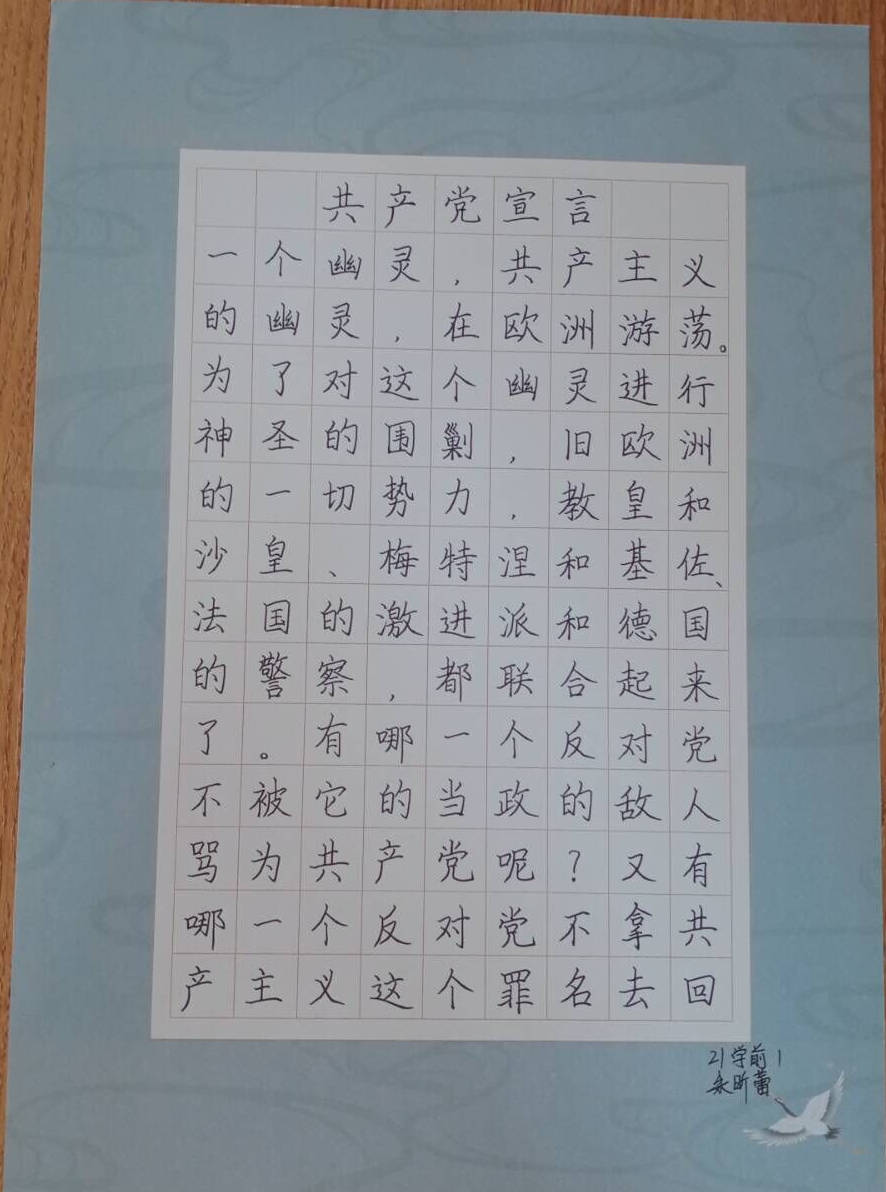 共产党宣言
一个幽灵，共产主义
的幽灵，在欧洲游荡。
为了对这个幽灵进行
神圣的围剿，旧欧洲
的一切势力，教皇和
沙皇、梅特涅和基佐、
法国的激进派和德国
的警察，都联合起来
了。有哪一个反对党
不被它的当政的敌人
骂为共产党呢？又有
哪一个反对党不拿共
产主义这个罪名去回
21学前1
永昕蕾